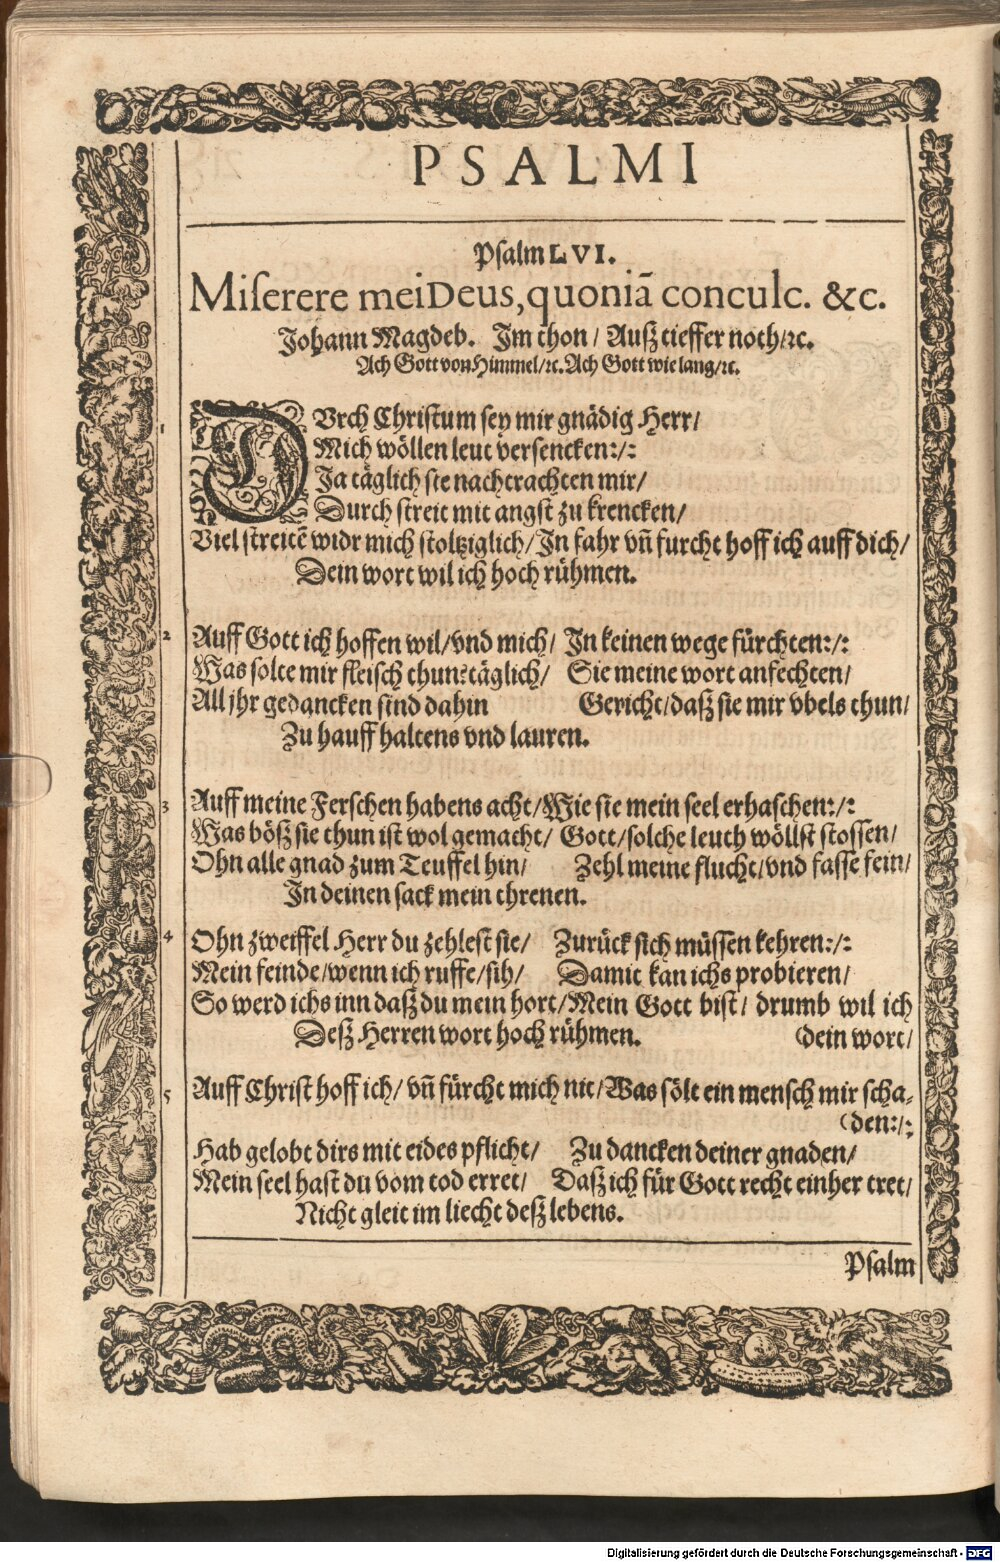 PSALMI
Psalm LVI.
Miserere mei Deus, quoniã conculc. &c.
Johann Magdeb. Im thon / Auß tieffer noth / ꝛc.
Ach Gott von Himmel / ꝛc. Ach Gott wie lang / ꝛc.
1 DVrch Christum sey mir gnädig Herr /
Mich wöllen leut versencken :/:
Ja täglich sie nachtrachten mir /
Durch streit mit angst zu krencken /
Viel streitē widr mich stoltziglich / In fahr vñ furcht hoff ich auff dich /
Dein wort wil ich hoch rühmen.
2 Auff Gott ich hoffen wil / vnd mich / In keinen wege fürchten :/:
Was solte mir fleisch thun? täglich / Sie meine wort anfechten /
All jhr gedancken sind dahin Gericht / daß sie mir vbels thun /
Zu hauff haltens vnd lauren.
3 Auff meine Ferschen habens acht / Wie sie mein seel erhaschen :/:
Was böß sie thun ist wol gemacht / Gott / solche leuth wöllst stossen /
Ohn alle gnad zum Teuffel hin / Zehl meine flucht / vnd fasse fein /
In deinen sack mein threnen.
4 Ohn zweiffel Herr du zehlest sie / Zurück sich müssen kehren :/:
Mein feinde / wenn ich ruffe / sih / Damit kan ichs probieren /
So werd ichs inn daß du mein hort / Mein Gott bist / drumb wil ich
Deß Herren wort hoch rühmen. (dein wort /
5 Auff Christ hoff ich / vñ fürcht mich nit / Was sölt ein mensch mir scha-
(den :/:
Hab gelobt dirs mit eides pflicht / Zu dancken deiner gnaden /
Mein seel hast du vom tod erret / Daß ich für Gott recht einher tret /
Nicht gleit im liecht deß lebens.
Psalm
Digitalisierung gefördert durch die Deutsche Forschungsgemeinschaft - DFG